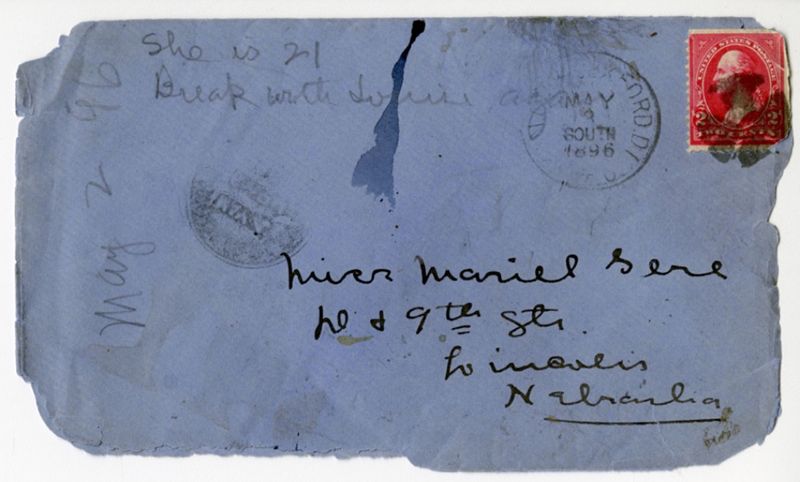 She is 21
Break with Louise again
May 2 96
MAY
SOUTH
1896
UNITED STATES POSTAGE
2 2
TWO CENTS
Miss Mariel Gere
D & 9th Sts.
Lincoln
Nebraska